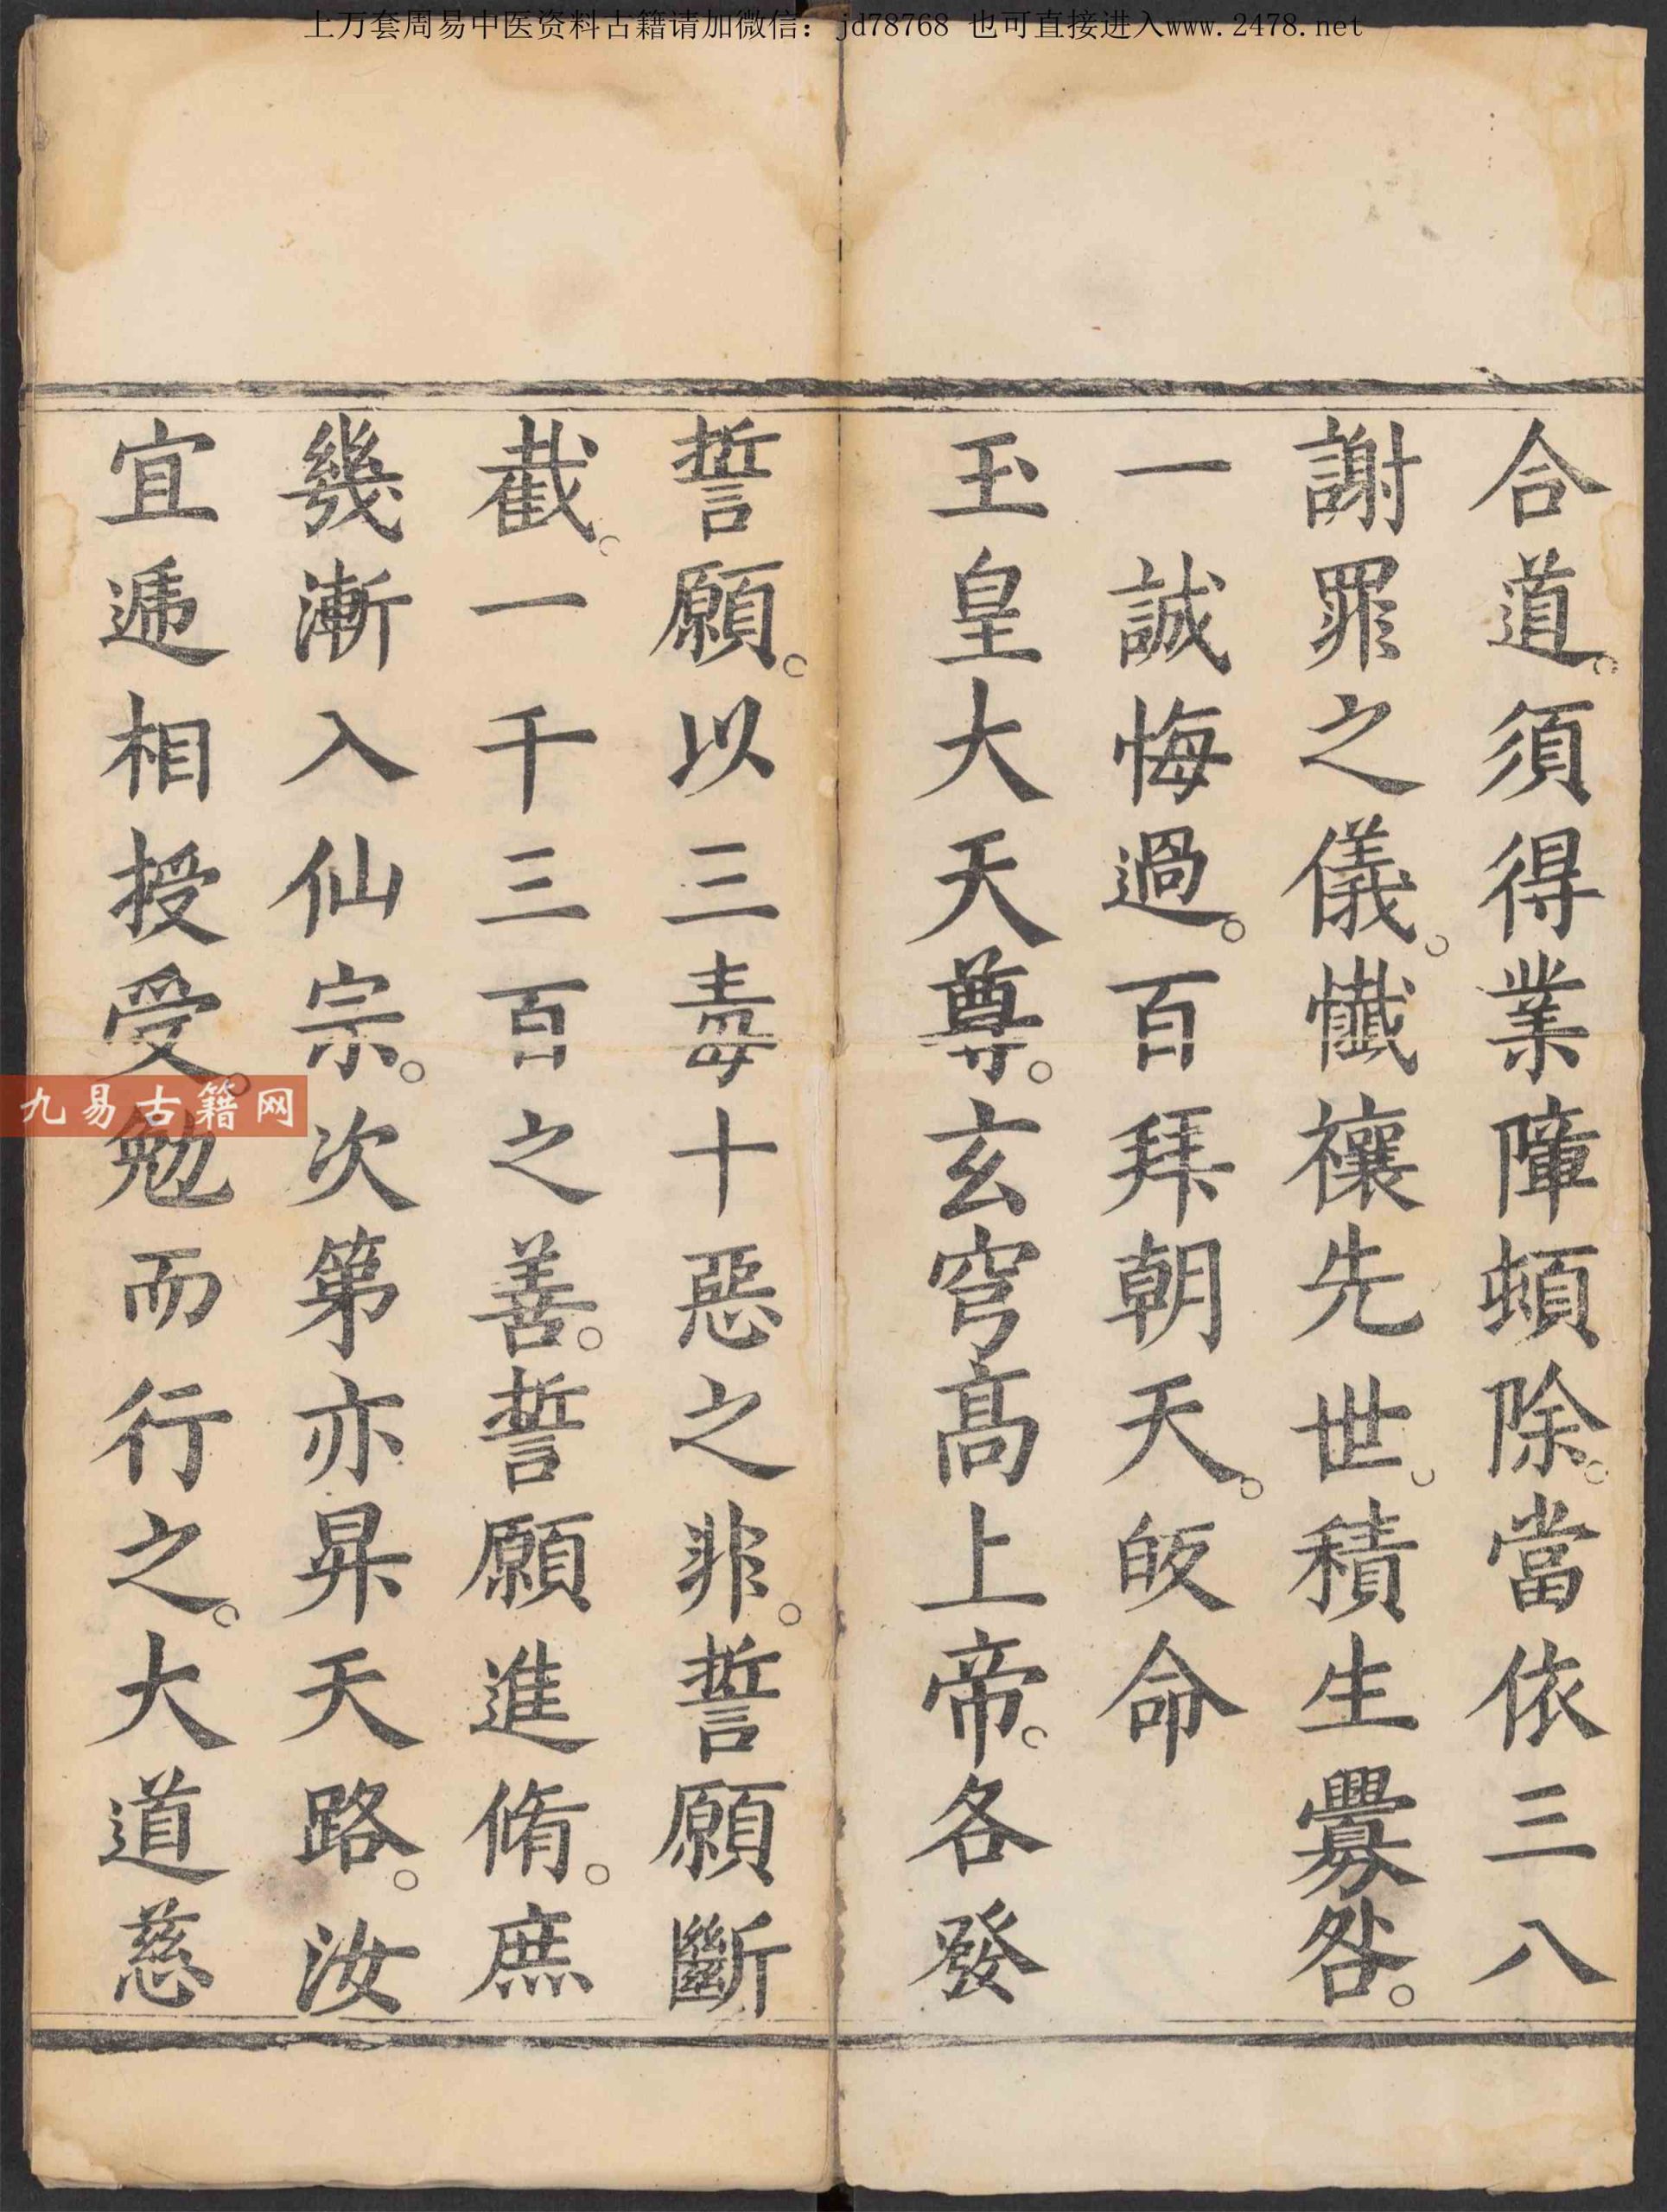 上万套周易中医资料古籍请加微信：jd78768 也可直接进入www.2478.net
合道。須得業障頓除。當依三八
謝罪之儀。懺禳先世。積生釁咎。
一誠悔過。百拜朝天。皈命
玉皇大天尊。玄穹高上帝。各發
誓願。以三毒十惡之非。誓願斷
截。一千三百之善。誓願進脩。庶
幾漸入仙宗。次第亦昇天路。汝
宜遞相授受。勉而行之。大道慈
九易古籍网